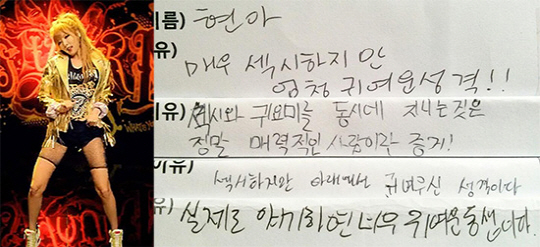 름) 현아
유)
매우 섹시하지만
엄청 귀여운성격!!
유) 섹시와 귀요미를 동시에 지니는것은
정말 매력적인 사람이란 증거!
이유)
섹시하지만 아래에선 귀여우신 성격이다
유) 실제로 얘기하면 너무 귀여운 동생이다.